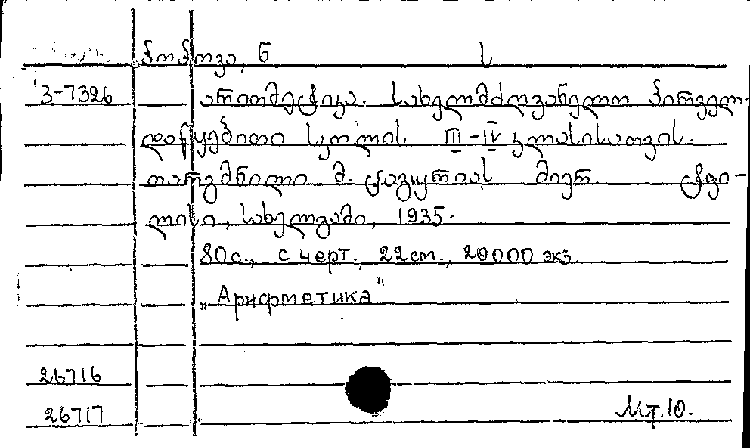 პოპოვა, ნ ს
3-7326 არითმეტიკა. სახელმძღვანელო პირველ-
დაწყებითი სკოლის. III-IV კლასისათვის.
თარგმნილი მ. მიერ. ტფი-
ლისი, სახელგამი, 1935.
80 с., с черт., 22 см., 20000 экз.
„Арифметика"
26716
26717 Мт.10.